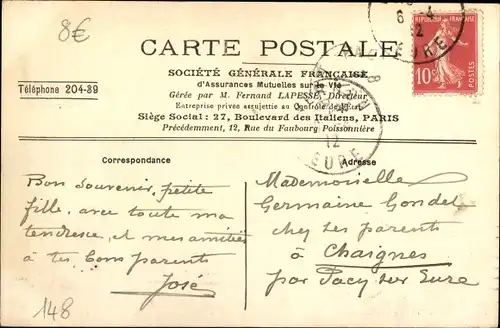 8€
6
12
EURE
RÉPUBLIQUE FRANÇAISE
10c
POSTES
CARTE POSTALE
SOCIÉTÉ GÉNÉRALE FRANÇAISE
d'Assurances Mutuelles sur la Vie
Téléphone 204-89
Gérée par M. Fernand LAPESSE, Directeur
Entreprise privée assujettie au Contrôle de l'État
Siège Social : 27, Boulevard des Italiens, PARIS
Précédemment, 12, Rue du Faubourg Poissonnière
12
EURE
Correspondance
Adresse
Bon souvenir, petite
fille, avec toute ma
tendresse, et mes amitiés
à tes bons parents
José
Mademoiselle
Germaine Gondel
chez ses parents
à Chaignes
par Pacy sur Eure
148